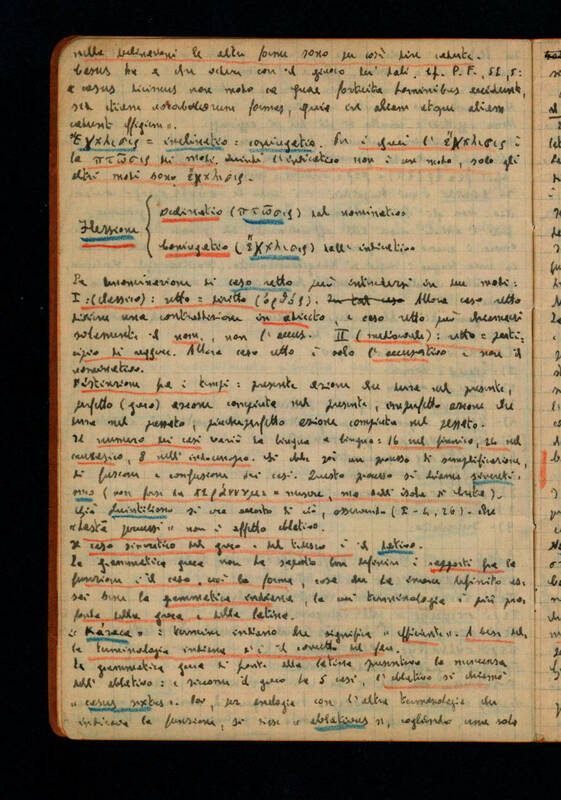 nella declinazione le altre forme sono per così dire cadute.
Casus ha a che vedere con il giuoco dei dadi. Cf. P. F., 51, 5:
« casus dicimus non modo ea quae fortuita hominibus accidunt,
sed etiam vocabulorum formas, quia in aliam atque aliam
cadunt effigiem ».
Ἔγκλισις = inclinatio = coniugatio. Per i greci l'ἔγκλισις è
la πτῶσις dei modi. Quindi l'indicativo non è un modo, solo gli
altri modi sono ἔγκλισις.
Flessione
Declinatio (πτῶσις) dal nominativo
Coniugatio (ἔγκλισις) dall'indicativo
La denominazione di caso retto può intendersi in due modi:
I: (classico): retto = diritto (ὀρθός). Allora caso retto
diviene una contraddizione in adiecto, e caso retto può chiamarsi
solamente il nom., non l'accus. II (medioevale): retto = parti-
cipio di reggere. Allora caso retto è solo l'accusativo e non il
nominativo.
Distinzione fra i tempi: presente azione che dura nel presente,
perfetto (greco) azione compiuta nel presente, imperfetto azione che
dura nel passato, piucheperfetto azione compiuta nel passato.
Il numero dei casi varia da lingua a lingua: 16 nel finnico, 24 nel
caucasico, 8 nell'indoeuropeo. Si ebbe poi un processo di semplificazione,
di fusione e confusione dei casi. Questo processo si chiama sincreti-
smo (non forse da = mescere, ma dall'isola di Creta).
Già Quintiliano si era accorto di ciò, osservando (I - 4, 26) che
« hasta percussi » non è affatto ablativo.
Il caso sincretico del greco e del tedesco è il dativo.
La grammatica greca non ha saputo ben definire i rapporti fra la
funzione e il caso, cioè la forma, cosa che ha invece definito as-
sai bene la grammatica indiana, la cui terminologia è più pro-
fonda della greca e della latina.
« Kāraca »: termine indiano che significa « efficiente ». A base del-
la terminologia indiana vi è il concetto del fare.
La grammatica greca di fronte alla latina presentava la mancanza
dell'ablativo: e siccome il greco ha 5 casi, l'ablativo si chiamò
« casus sextus ». Poi, per analogia con l'altra terminologia che
indicava la funzione, si disse « ablativus », cogliendo una sola